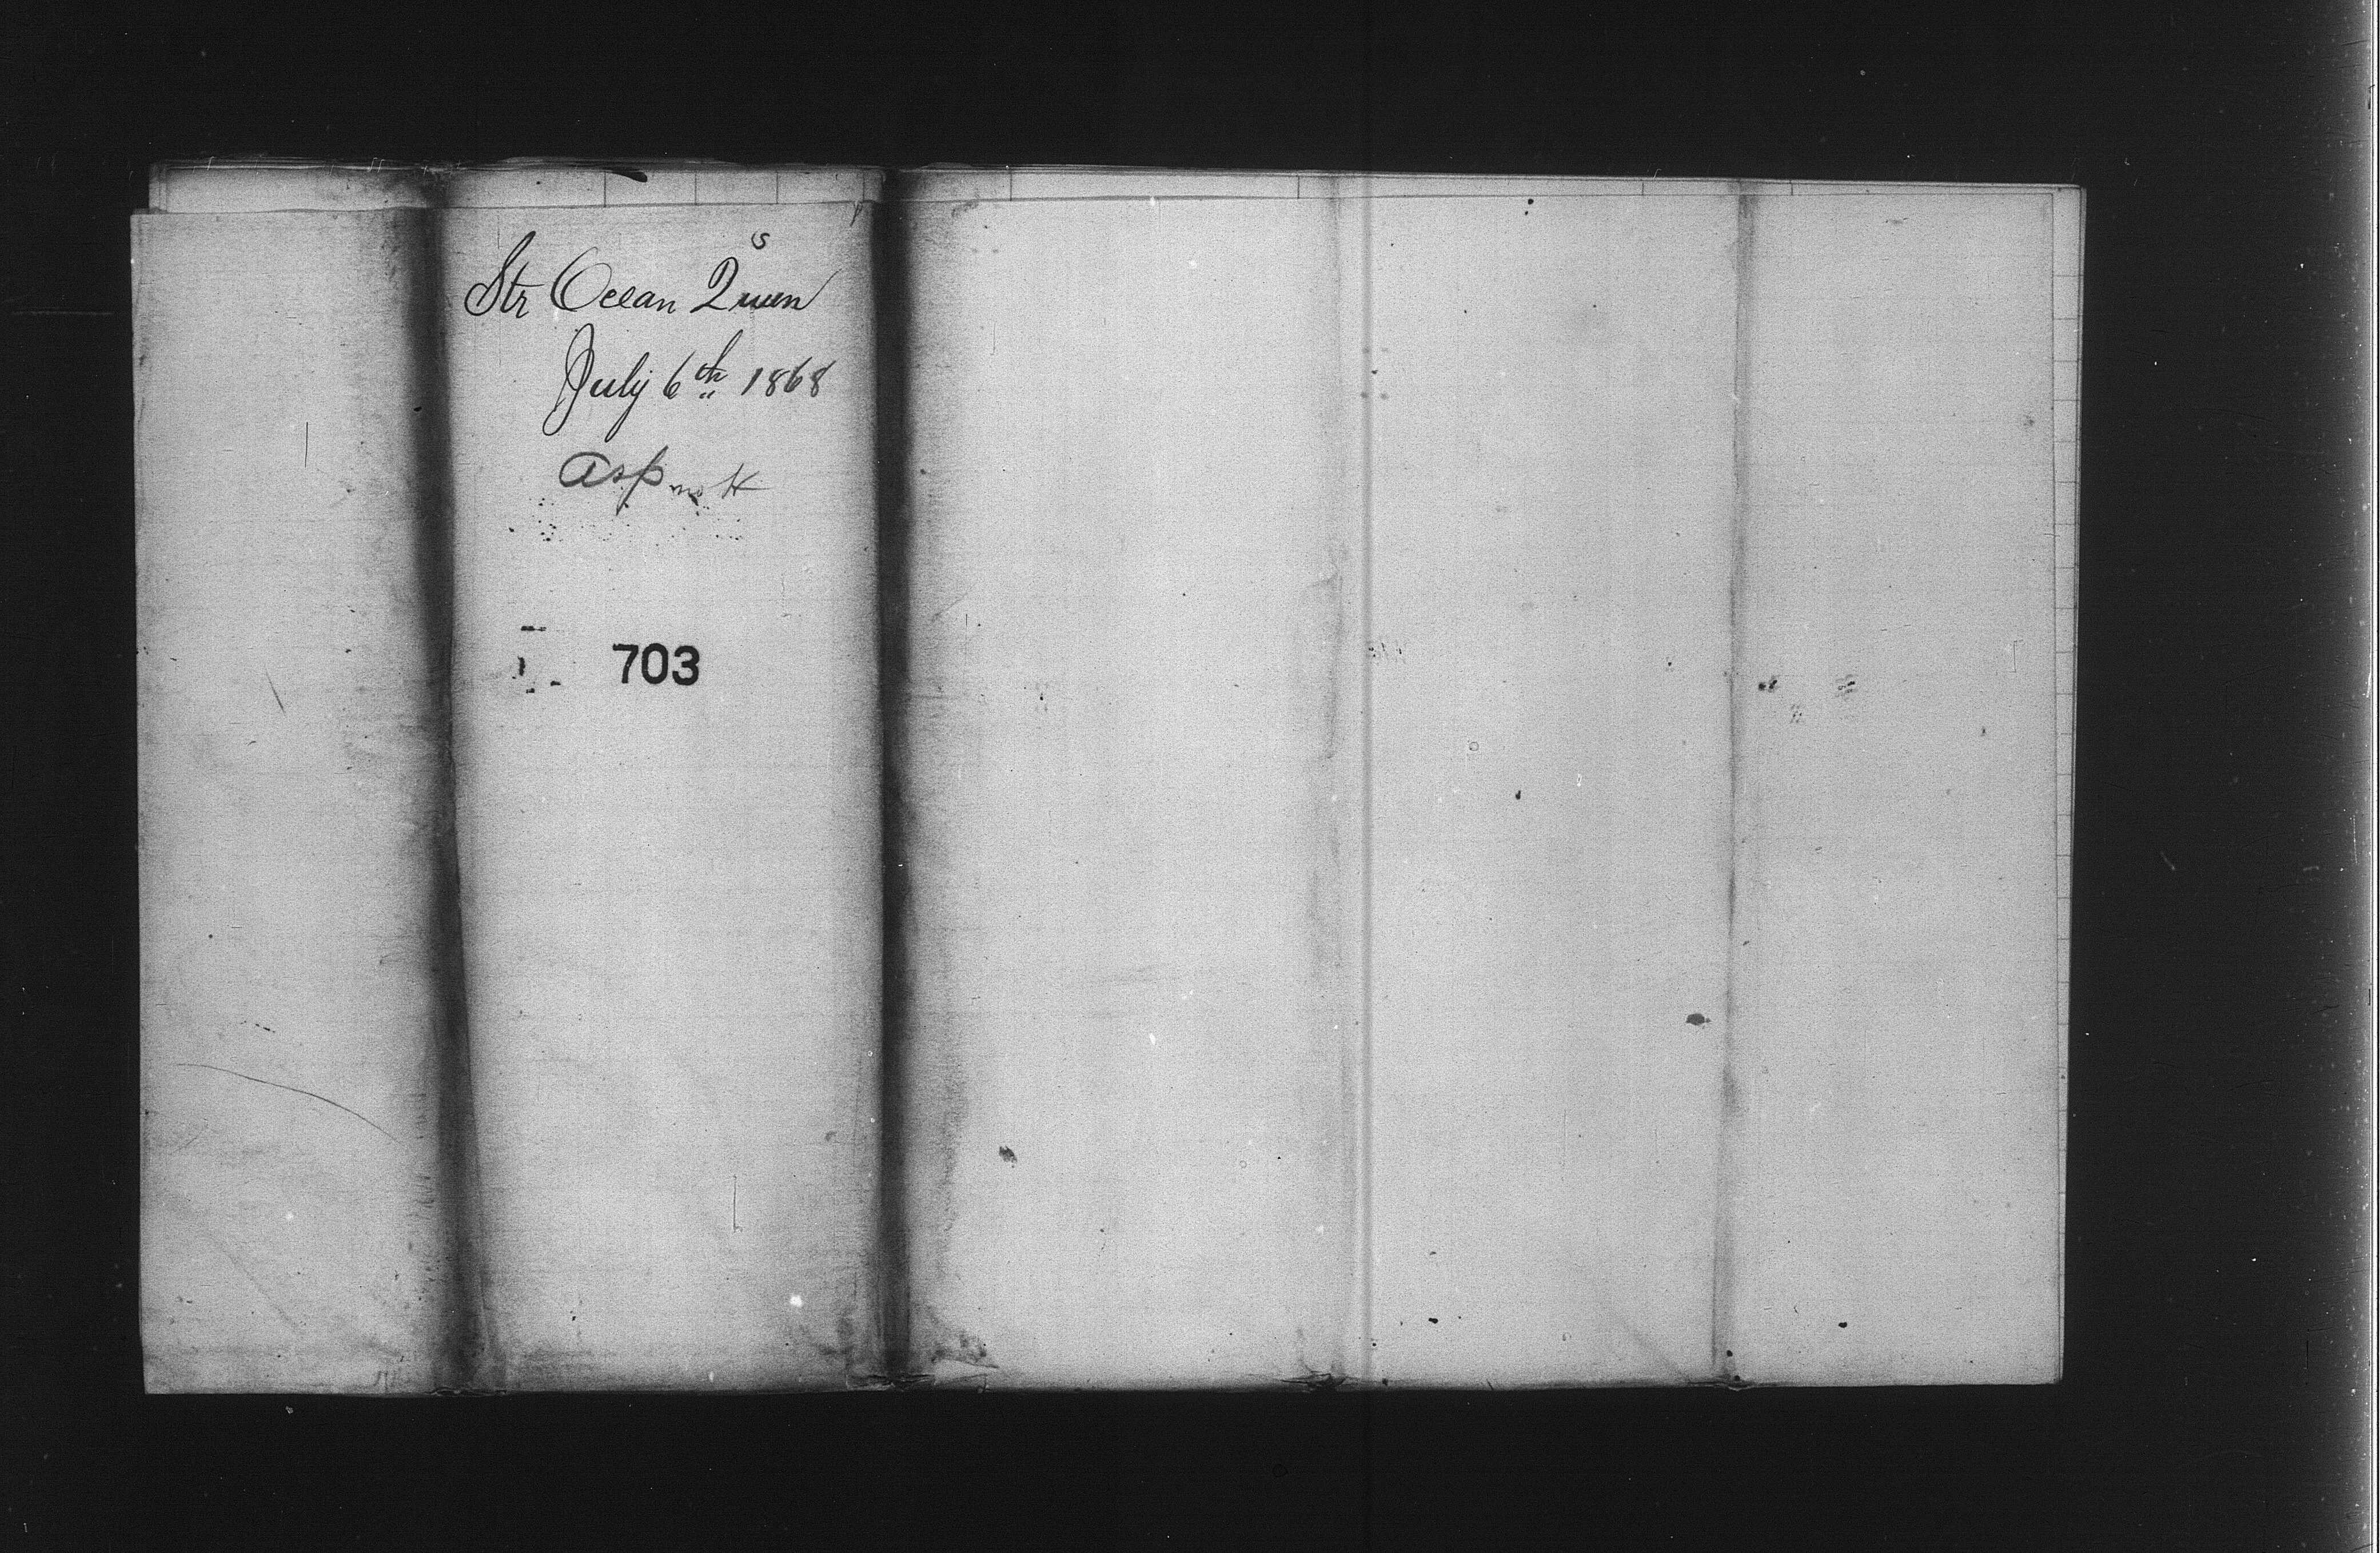 Str Ocean Queen
July 6th 1868
Asp
703